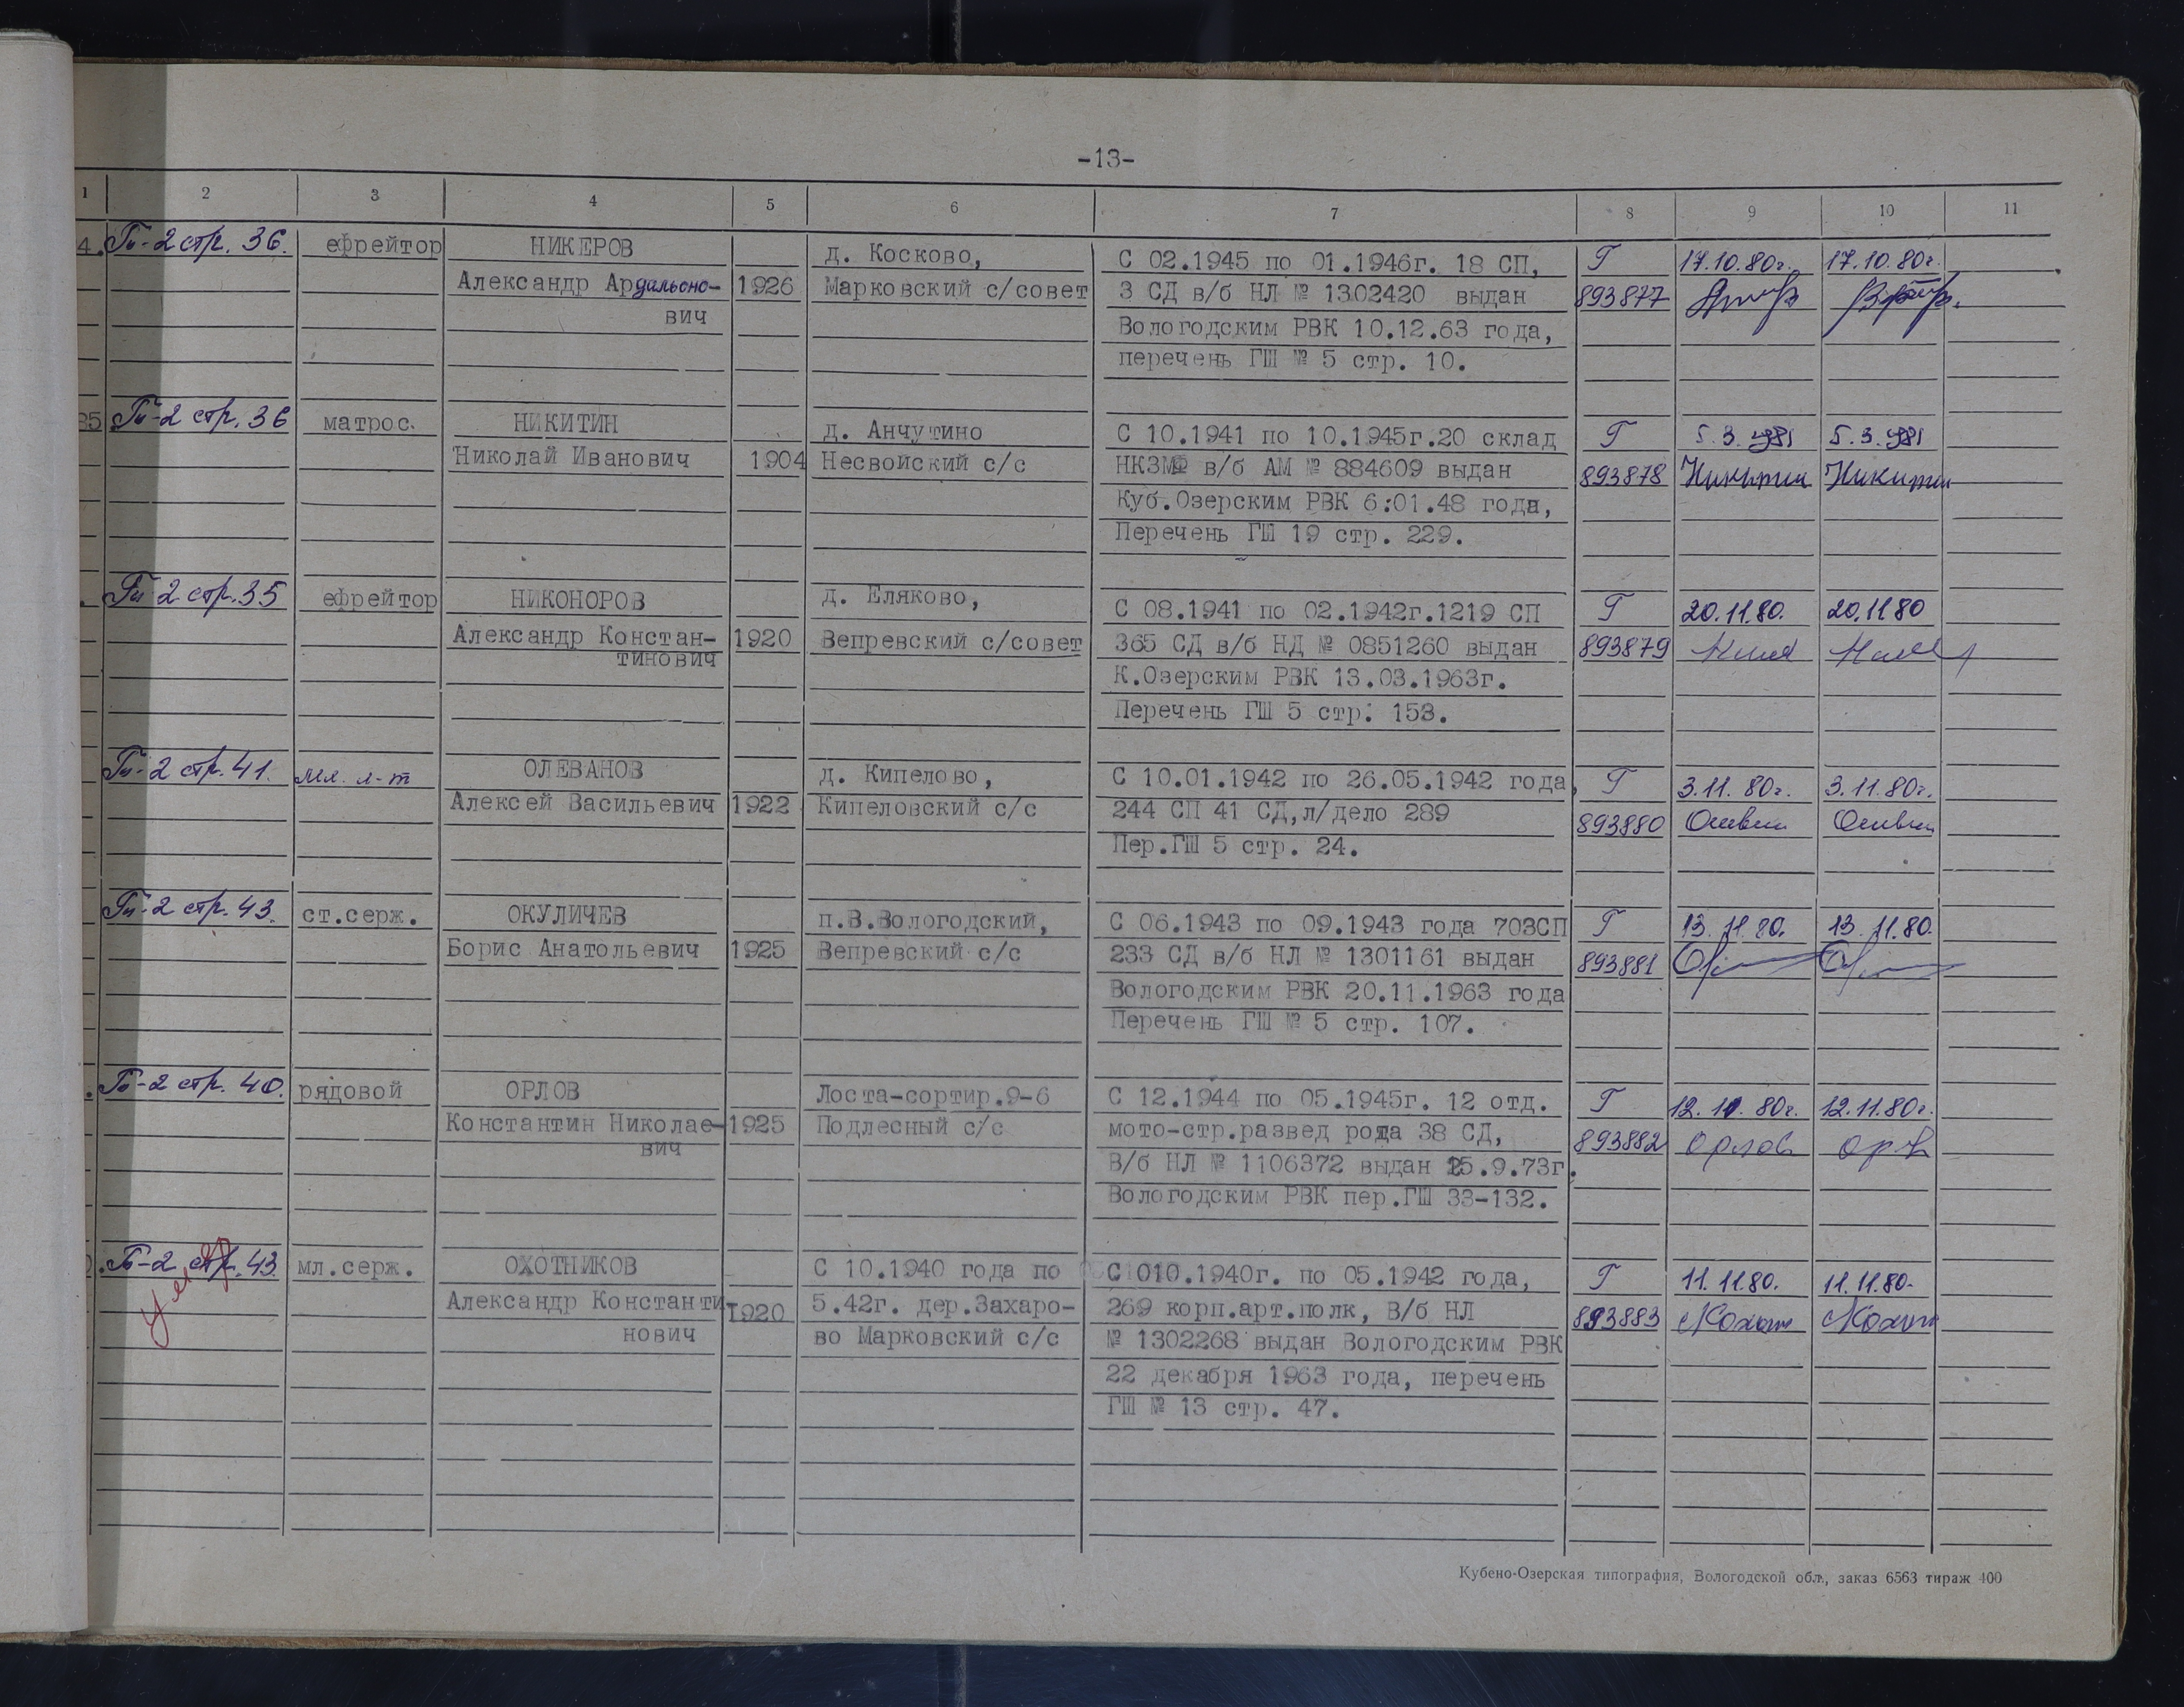 -13-
1 2 3 4 5 6 7 8 9 10 11
4. Гв-2 стр. 36. ефрейтор НИКЕРОВ д. Косково, С 02.1945 по 01.1946г. 18 СП, Г 17.10.80г. 17.10.80г.
Александр Ардальоно- 1926 Марковский с/совет 3 СД в/б НЛ № 1302420 выдан 893877
вич Вологодским РВК 10.12.63 года,
перечень ГШ № 5 стр. 10.
35 Гв-2 стр. 36 матрос. НИКИТИН д. Анчутино С 10.1941 по 10.1945г.20 склад Г 5.3.1981 5.3.1981
Николай Иванович 1904 Несвойский с/с НКЗМФ в/б АМ № 884609 выдан 893878 Никитин Никитин
Куб.Озерским РВК 6:01.48 года,
Перечень ГШ 19 стр. 229.
. Гв 2 стр.35 ефрейтор НИКОНОРОВ д. Еляково, С 08.1941 по 02.1942г.1219 СП Г 20.11.80. 20.11.80
Александр Констан- 1920 Вепревский с/совет 365 СД в/б НД № 0851260 выдан 893879
тинович К.Озерским РВК 13.03.1963г.
Перечень ГШ 5 стр. 153.
Гв-2 стр. 41. мл. л-т ОЛЕВАНОВ д. Кипелово, С 10.01.1942 по 26.05.1942 года, Г 3.11.80г. 3.11.80г.
Алексей Васильевич 1922 Кипеловский с/с 244 СП 41 СД,л/дело 289 893880
Пер.ГШ 5 стр. 24.
Гв-2 стр. 43. ст.серж. ОКУЛИЧЕВ п.В.Вологодский, С 06.1943 по 09.1943 года 703СП Г 13.11.80. 13.11.80.
Борис Анатольевич 1925 Вепревский с/с 233 СД в/б НЛ № 1301161 выдан 893881
Вологодским РВК 20.11.1963 года
Перечень ГШ № 5 стр. 107.
. Гв-2 стр. 40. рядовой ОРЛОВ Лоста-сортир.9-6 С 12.1944 по 05.1945г. 12 отд. Г 12.11.80г. 12.11.80г.
Константин Николае- 1925 Подлесный с/с мото-стр.развед рота 38 СД, 893882 Орлов
вич В/б НЛ № 1106372 выдан 25.9.73г.
Вологодским РВК пер.ГШ 33-132.
. Гв-2 стр. 43. мл.серж. ОХОТНИКОВ С 10.1940 года по С 010.1940г. по 05.1942 года, Г 11.11.80. 11.11.80.
Александр Константи- 1920 5.42г. дер.Захаро- 269 корп.арт.полк, В/б НЛ 893883
нович во Марковский с/с № 1302268 выдан Вологодским РВК
22 декабря 1963 года, перечень
ГШ № 13 стр. 47.
Кубено-Озерская типография, Вологодской обл., заказ 6563 тираж 400